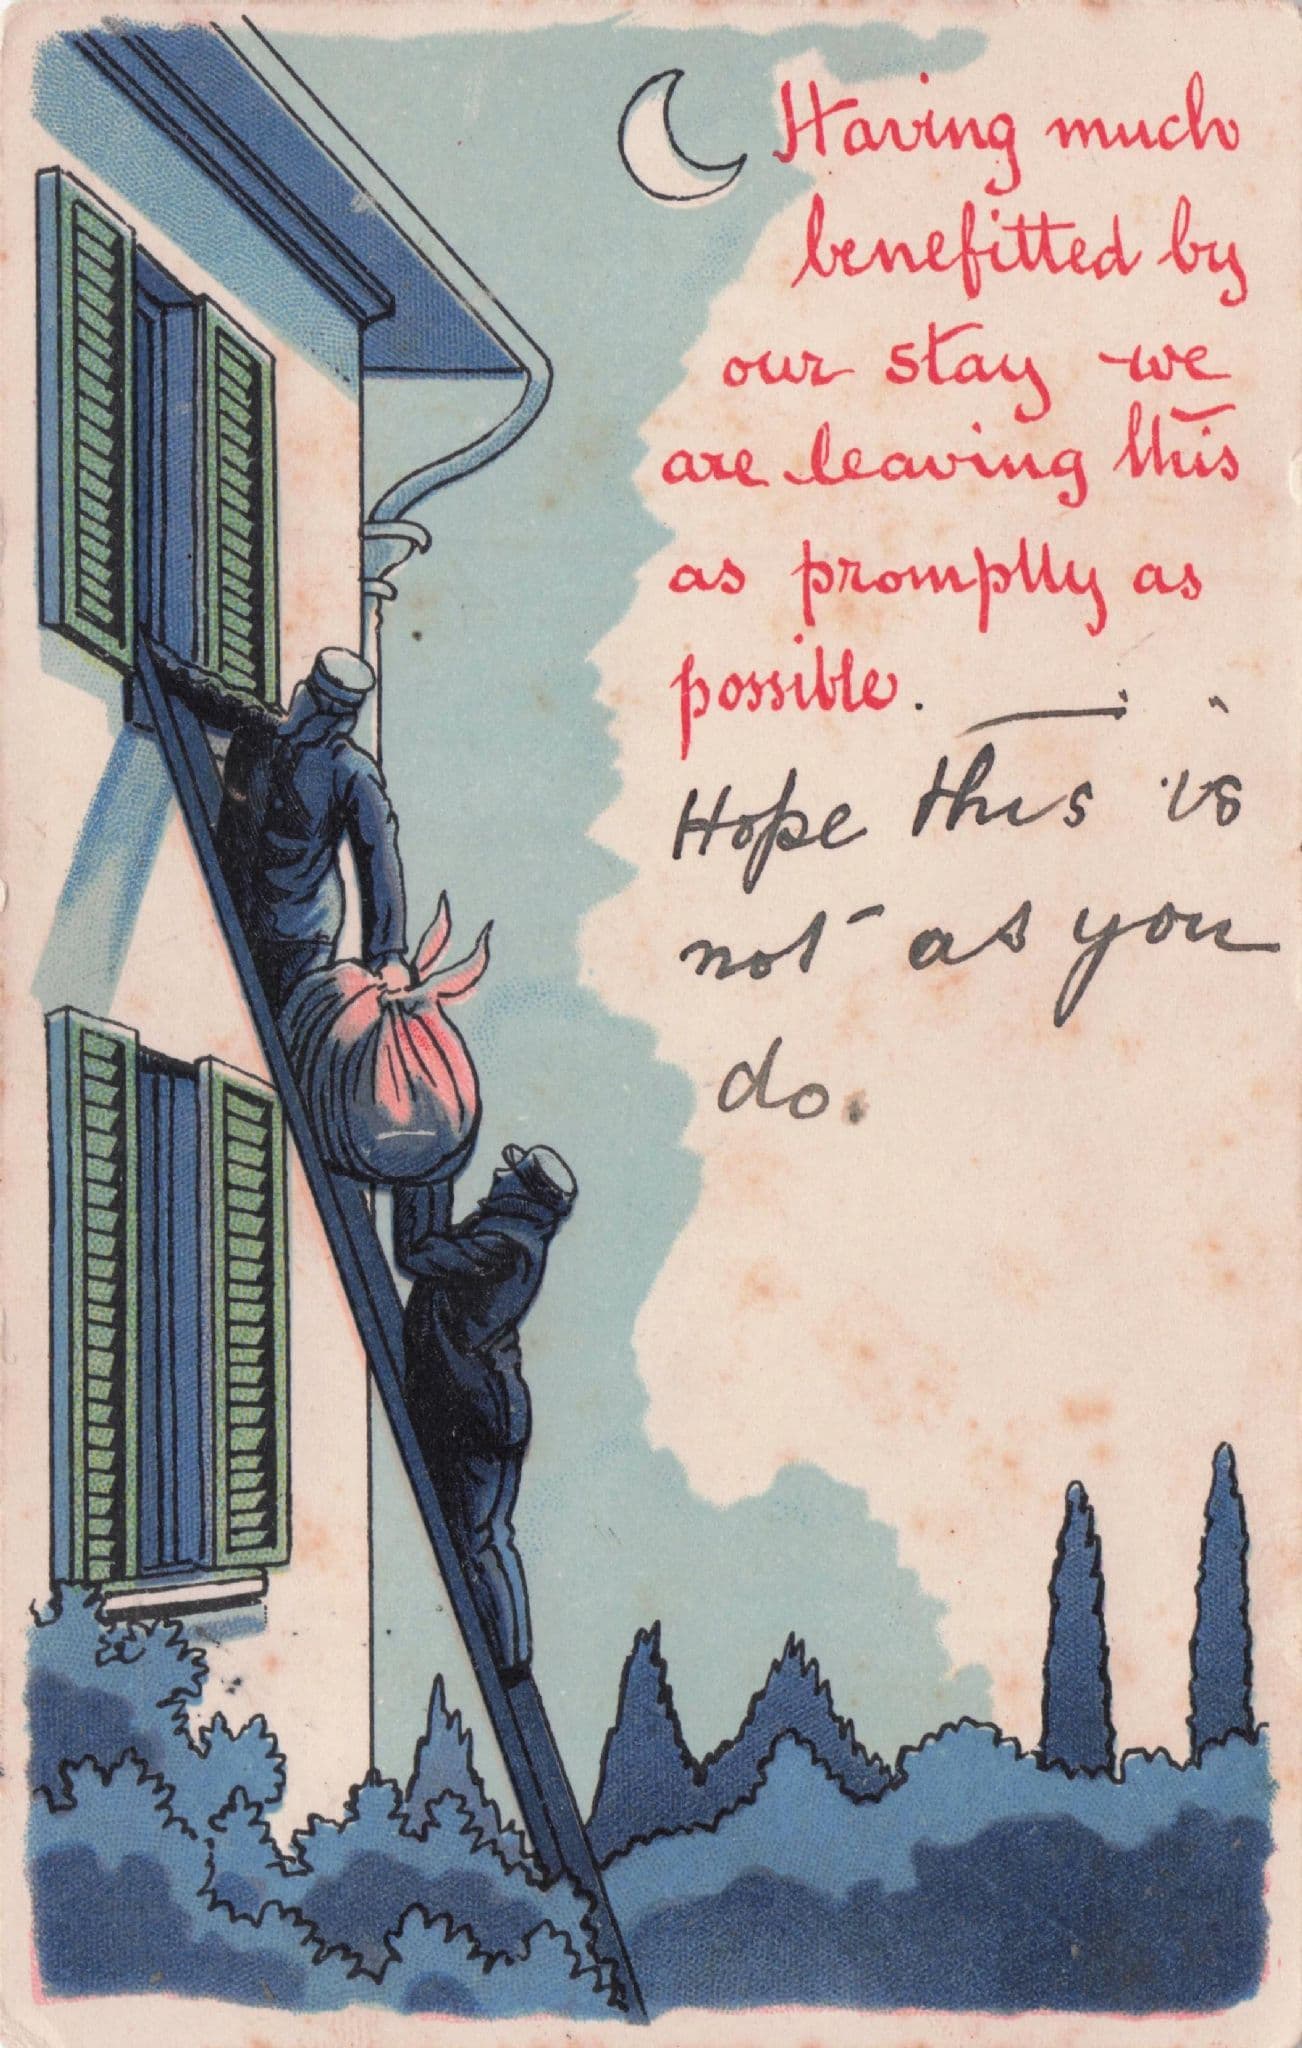 Having much
benefitted by
our stay we
are leaving this
as promptly as
possible.
Hope this is
not as you
do.